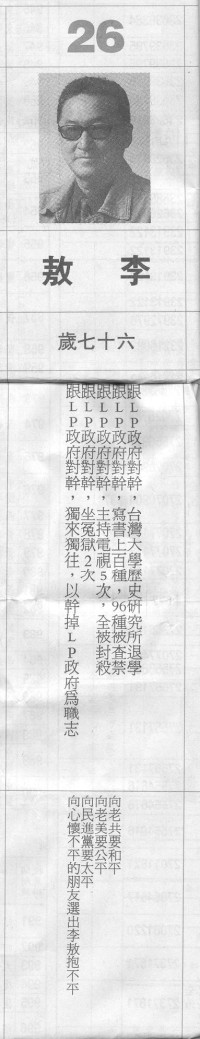 26
李敖
六十七歲
跟LP政府對幹，台灣大學歷史研究所退學
跟LP政府對幹，寫書上百種，96種被查禁
跟LP政府對幹，主持電視5次，全被封殺
跟LP政府對幹，坐冤獄2次
跟LP政府對幹，獨來獨往，以幹掉LP政府爲職志
向老共要和平
向老美要公平
向民進黨要太平
向心懷不平的朋友選出李敖抱不平